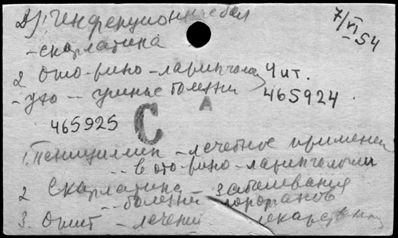 2) 1. Инфекционные бол. 7/VI 54
- скарлатина
2 Ото-рино-ларингология 4 ит.
- ухо - ушные болезни 465924
465925 С А
1. Пенициллин - лечебное применен
- - в ото-рино-ларингологии
2 Скарлатина - заболевания
- болезни лорорганов
3. Отит - лечение лекарствен